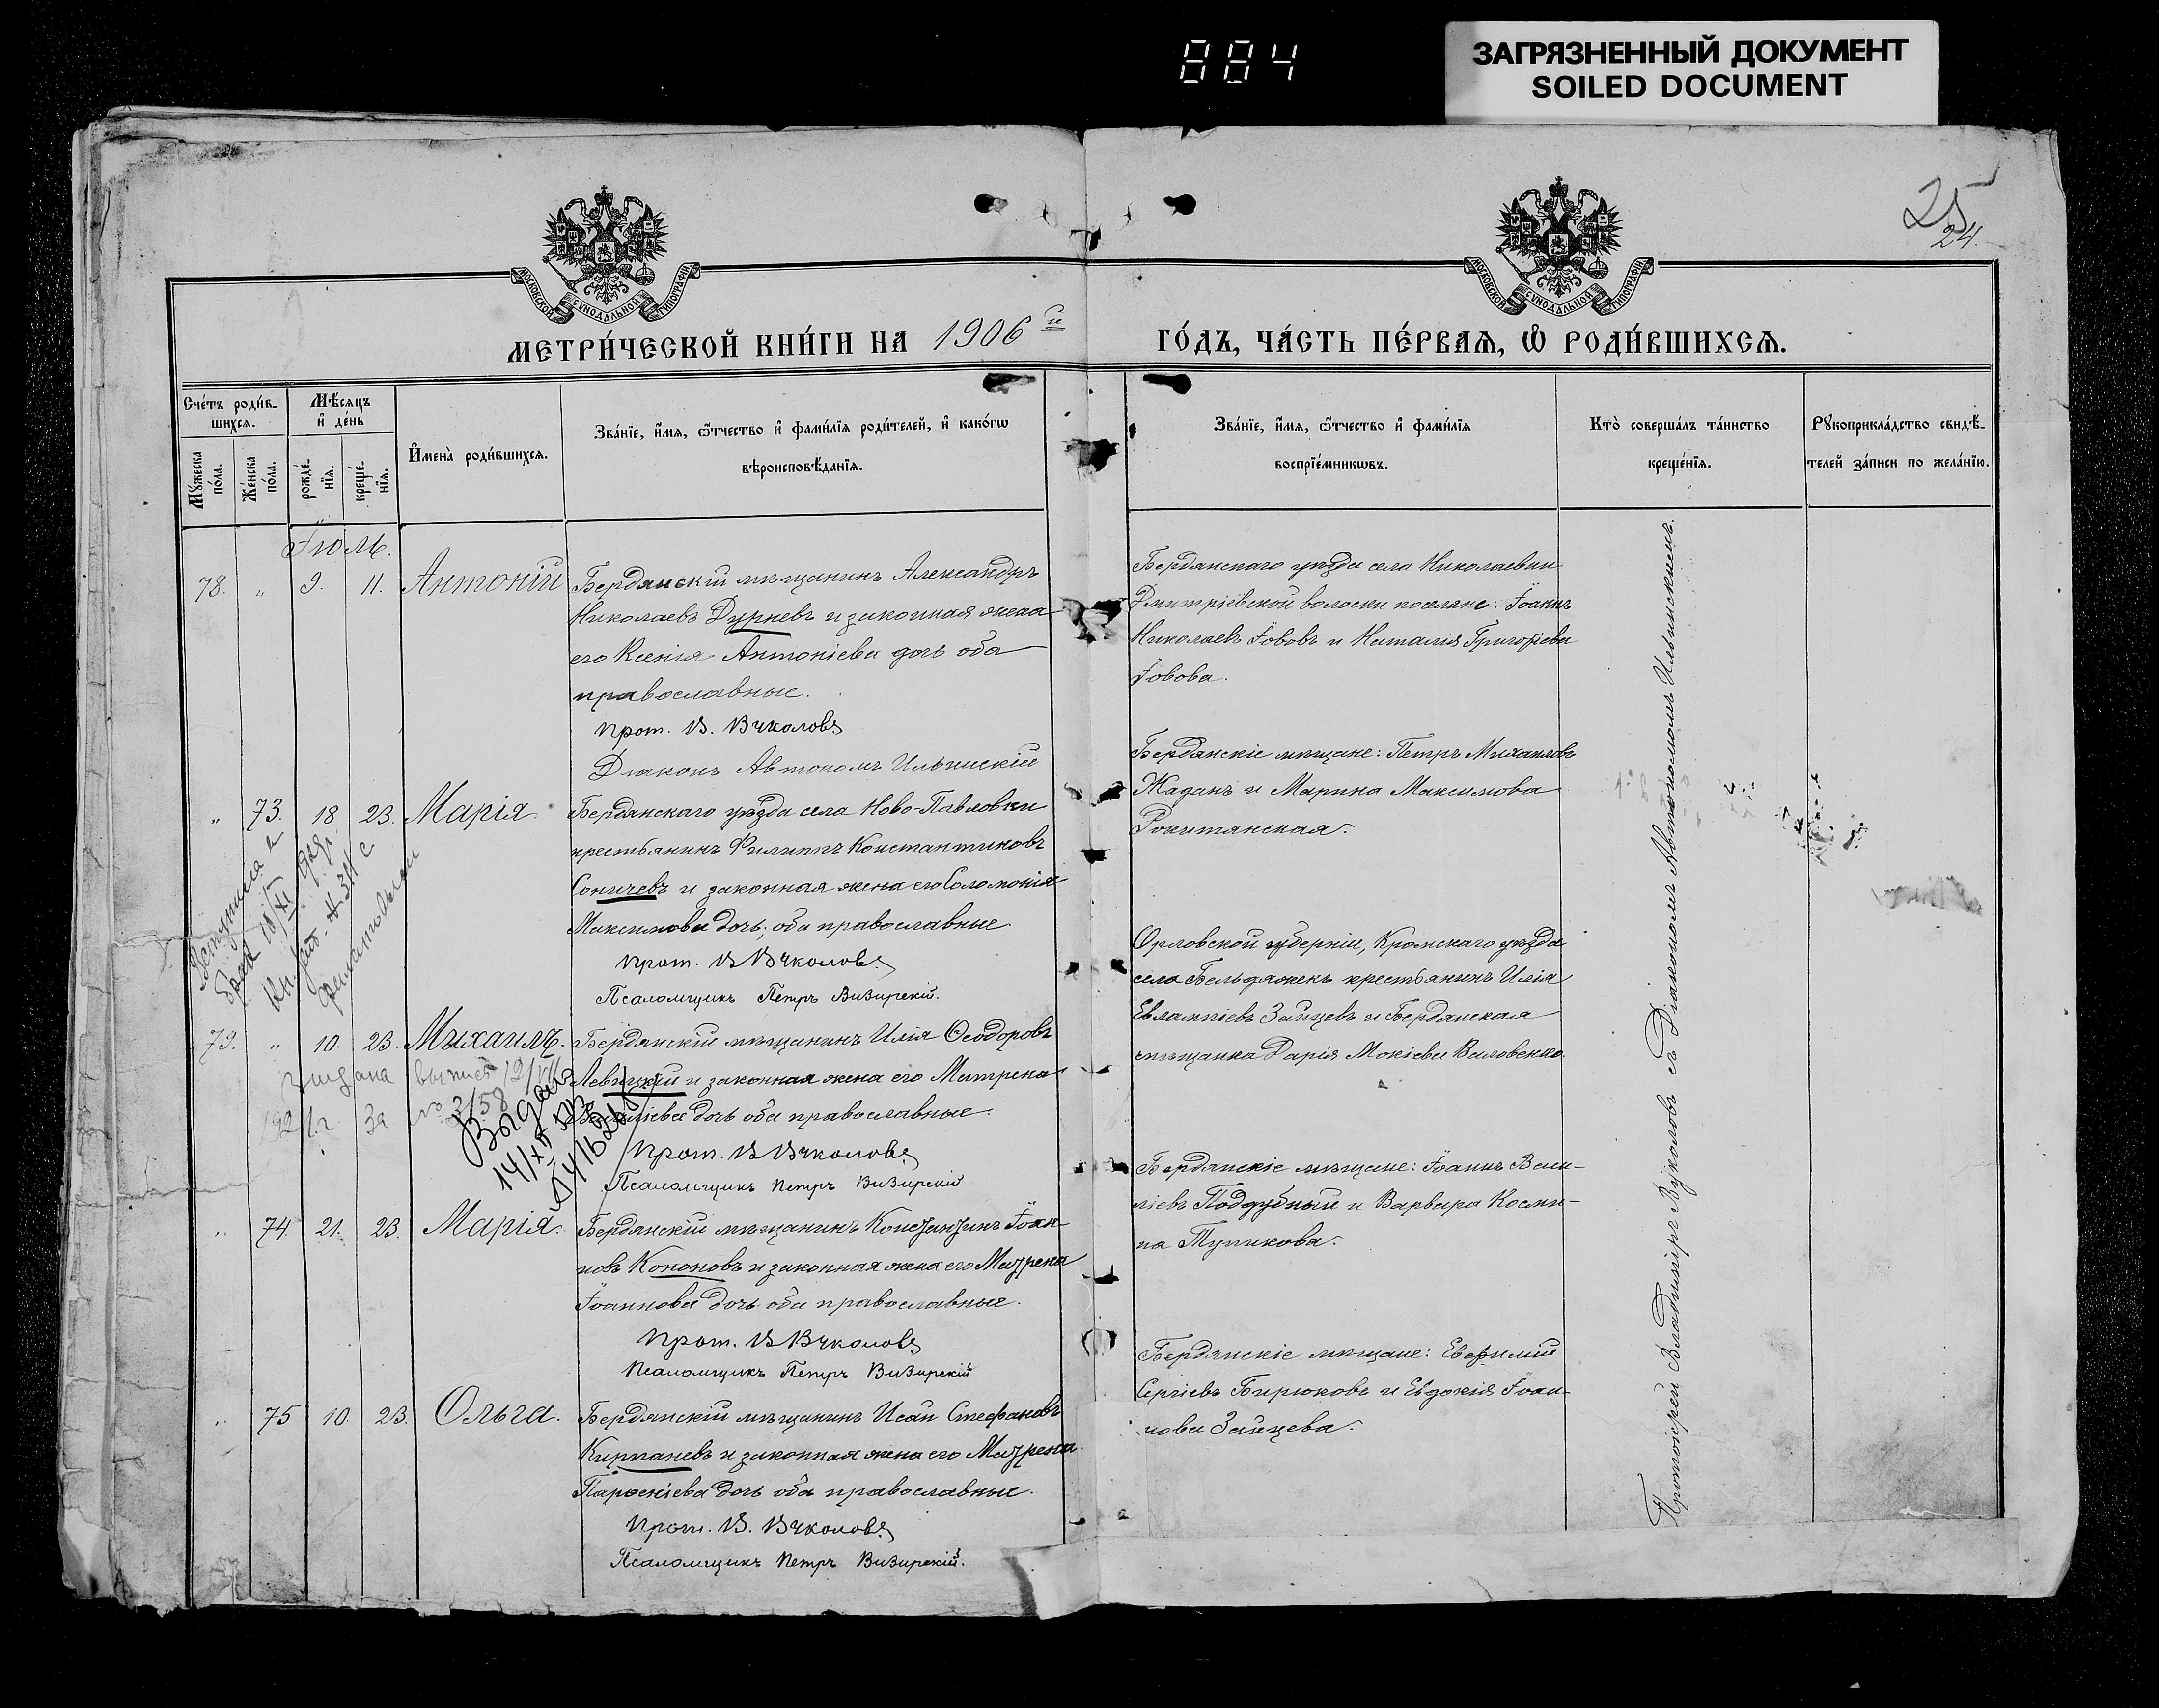 884
ЗАГРЯЗНЕННЫЙ ДОКУМЕНТ
SOILED DOCUMENT
25
24.
МОСКОВСКОЙ СѴНОДАЛЬНОЙ ТИПОГРАФІИ
МОСКОВСКОЙ СѴНОДАЛЬНОЙ ТИПОГРАФІИ
МЕТРИ́ЧЕСКОЙ КНИ́ГИ НА 1906 й ГО́ДЪ, ЧА́СТЬ ПЕ́РВАѦ, Ѡ҆ РОДИ́ВШИХСѦ.
Сче́тъ роди́в-
шихсѧ.
Мꙋжеска по́ла.
Же́нска по́ла.
Мѣ́сѧцъ
и҆ де́нь
рожде́-нїѧ.
креще́-нїѧ.
И҆мена̀ роди́вшихсѧ.
Зва́нїе, и҆́мѧ, ѻ҆́тчество и҆ фами́лїѧ роди́телей, и҆ како́гѡ
вѣроисповѣ́данїѧ.
Зва́нїе, и҆́мѧ, ѻ҆́тчество и҆ фами́лїѧ
воспрїе́мникѡвъ.
Кто̀ соверша́лъ та́инство
креще́нїѧ.
Рꙋкоприкла́дство свидѣ́-
телей за́писи по жела́нїю.
Іюль.
78. „ 9. 11. Антоній
Бердянскій мѣщанинъ Александръ
Николаевъ Дурневъ и законная жена
его Ксенія Антоніева дочь оба
православные.
Прот. В. Вуколовъ
Діаконъ Автономъ Ильинскій
Бердянскаго уѣзда села Николаевки
Дмитріевской волости поселяне: Іоаннъ
Николаевъ Іововъ и Наталія Григоріева
Іовова.
„ 73. 18 23. Марія
Бердянскаго уѣзда села Ново-Павловки
крестьянинъ Филиппъ Константиновъ
Соничевъ и законная жена его Соломонія
Максимова дочь; оба православные
Прот. В Вуколовъ
Псаломщикъ Петръ Визирскій.
Бердянскіе мѣщане: Петръ Михаиловъ
Жаданъ и Марина Максимова
Рокитянская.
Вступила в
брак 18/XI
79. „ 10. 23. Михаилъ.
Бердянскій мѣщанинъ Илія Ѳеодоровъ
Левицкій и законная жена его Матрена
дочь оба православные
Прот. В Вуколовъ
Псаломщикъ Петръ Визирскій
Орловской губерніи, Кромскаго уѣзда
села Бельдяжекъ крестьянинъ Илія
Евлампіевъ Зайцевъ и Бердянская
мѣщанка Дарія Мокіева
Выдана
за №
Выдан
14/XII
„ 74. 21. 23. Марія.
Бердянскій мѣщанинъ Константинъ Іоан-
новъ Кононовъ и законная жена его Матрена
Іоаннова дочь оба православные.
Прот. В Вуколовъ
Псаломщикъ Петръ Визирскій
Бердянскіе мѣщане: Іоаннъ Васи-
ліевъ Поддубный и Варвара Косми-
на Тупикова.
„ 75 10. 23. Ольга.
Бердянскій мѣщанинъ Исаія Стефановъ
Кирпаневъ и законная жена его Матрена
Парѳеніева дочь оба православные.
Прот. В. Вуколовъ
Псаломщикъ Петръ Визирскій.
Бердянскіе мѣщане: Евфимій
Сергіевъ Бирюковъ и Евдокія Іоан-
нова Зайцева.
Протоіерей Владиміръ Вуколовъ съ Діакономъ Автономомъ Ильинскимъ.